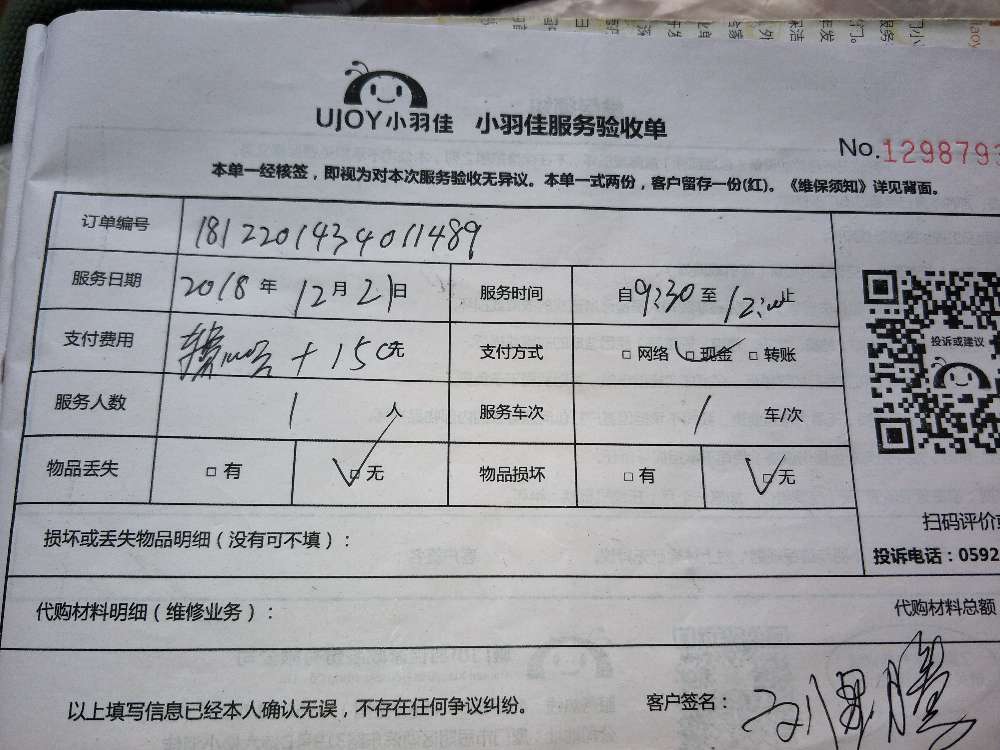 UJOY小羽佳 小羽佳服务验收单
No.1298793
本单一经核签，即视为对本次服务验收无异议。本单一式两份，客户留存一份(红)。《维保须知》详见背面。
订单编号 1812201434011489
服务日期 2018年12月21日 服务时间 自9:30至12:00止
支付费用 +150元 支付方式 □网络 □现金 □转账
投诉或建议
服务人数 1人 服务车次 1车/次
物品丢失 □有 □无 物品损坏 □有 □无
扫码评价
损坏或丢失物品明细（没有可不填）：
投诉电话：0592
代购材料明细（维修业务）：
代购材料总额
以上填写信息已经本人确认无误，不存在任何争议纠纷。
客户签名：